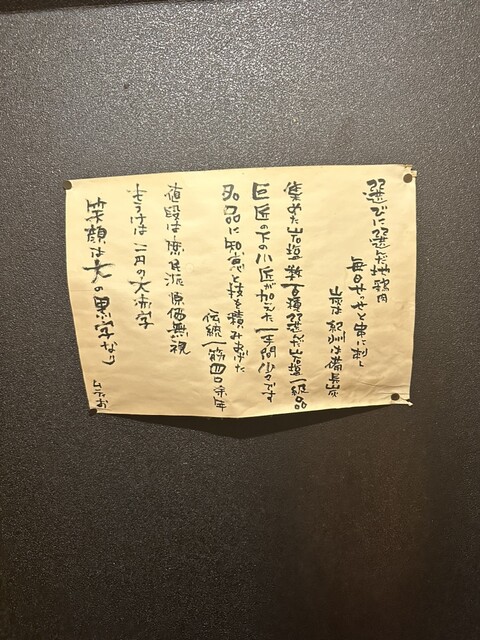 選びに選んだ地鶏肉
毎日せっせと串に刺し
炭は紀州は備長炭
集めた岩塩数百種選んだ岩塩一級品
巨匠の下の小匠が加えた一手間少々です
名品に知恵と技を積みあげた
伝統一筋四口余年
値段は庶民派原価無視
もうけは一円の大赤字
笑顔は大の黒字なり